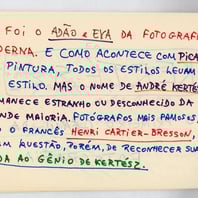 FOI O ADÃO e EVA DA FOTOGRAF
DERNA. E COMO ACONTECE COM PICA
PINTURA, TODOS OS ESTILOS LEVAM
ESTILO. MAS O NOME DE ANDRÉ KERTÉS
MANECE ESTRANHO OU DESCONHECIDO DA
ANDE MAIORIA. FOTÓGRAFOS MAIS FAMOSOS,
O O FRANCÊS HENRI CARTIER-BRESSON,
EM QUESTÃO, PORÉM, DE RECONHECER SUA
DA AO GÊNIO DE KERTÉSZ.